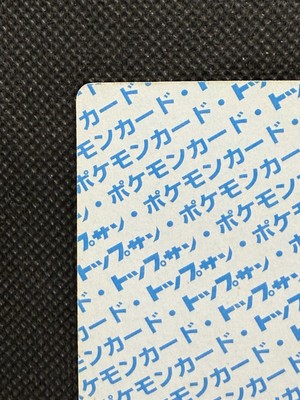 カード・
モンカード・
ケモンカード・
・ポケモンカード
トップサン・ポケモンカ
トップサン・ポケモ
・トップサン・ポ
ード・トップサン・
ンカード・トップサン
ケモンカード・トッ
ポケモンカード・